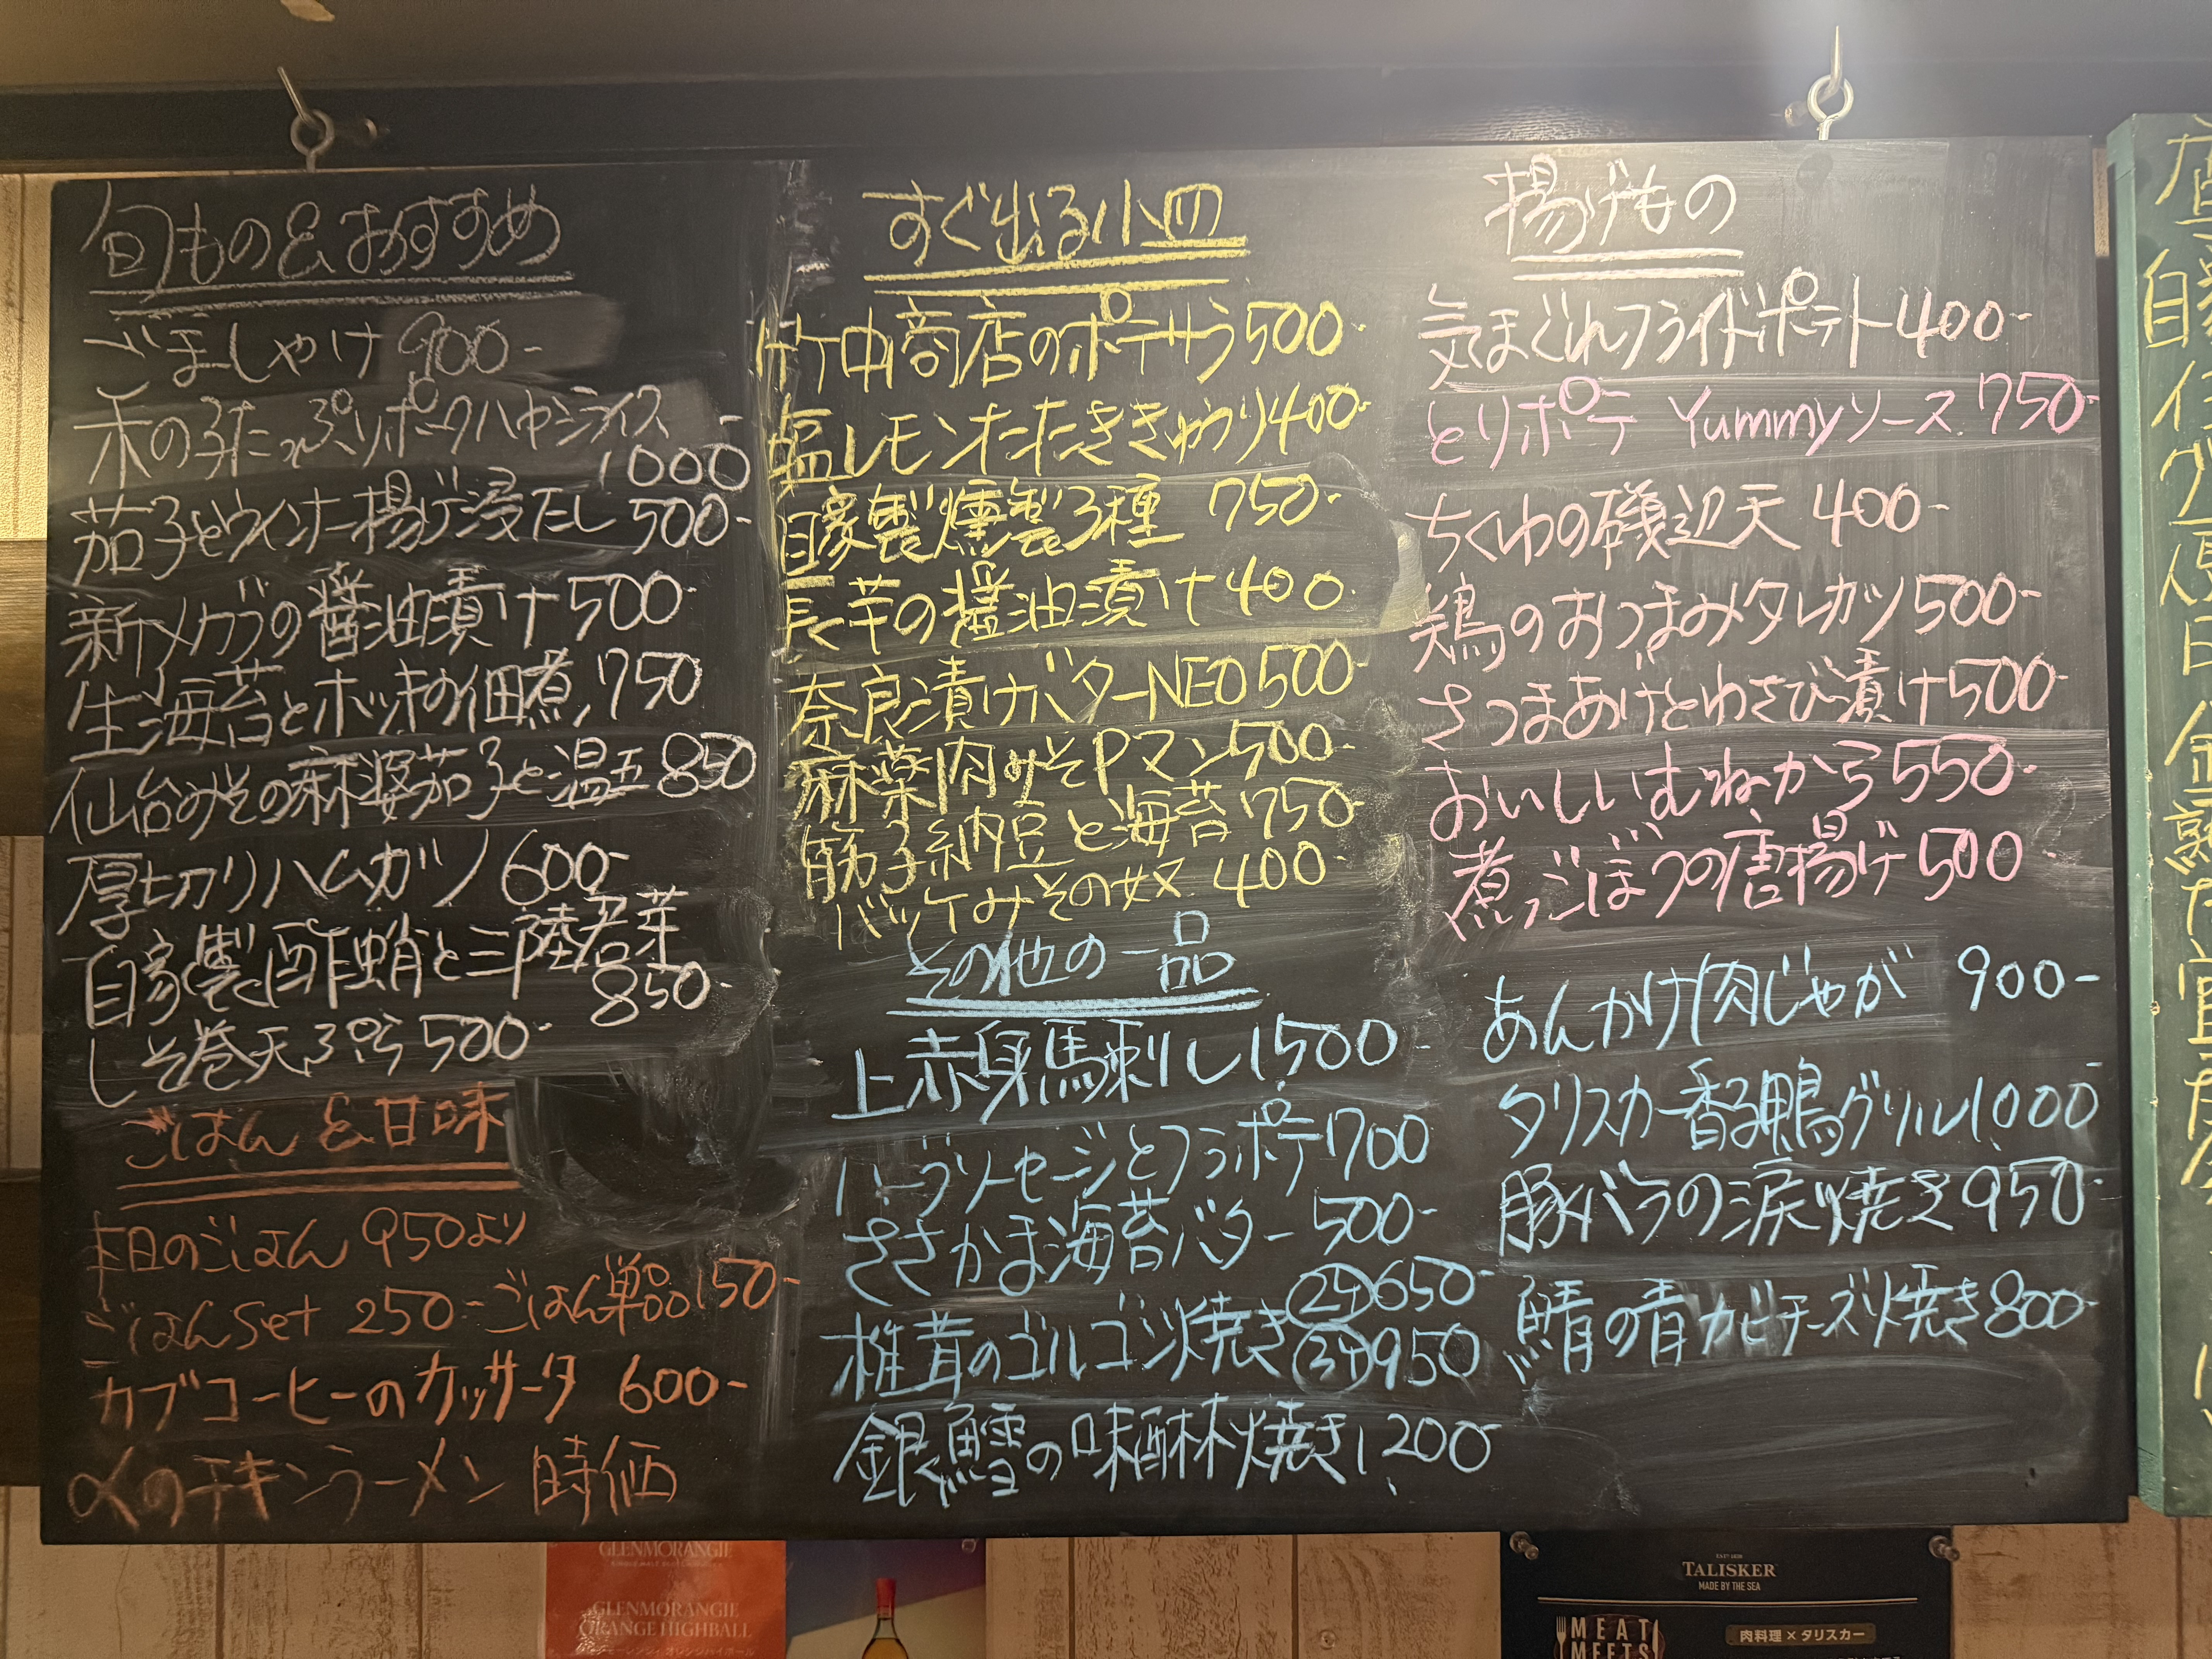 旬もの&おすすめ
ごましゃけ 900-
禾の子たっぷりポークハヤシライス
1000-
茄子とウインナー揚げ浸だし 500-
新メカブの醤油漬け 500-
生海苔とホッキの佃煮 750
仙台みその麻婆茄子と温玉 850
厚切りハムカツ 600-
自家製〆酢蛸と三陸若芽
850-
しそ巻天ぷら 500-
ごはん & 甘味
本日のごはん 950より
ごはんset 250- ごはん単品 150-
カブコーヒーのカッサータ 600-
〆のチキンラーメン 時価
すぐ出る小皿
竹中商店のポテサラ 500-
塩レモンたたききゅうり 400-
自家製燻製3種 750-
長芋の醤油漬け 400-
奈良漬けバターNEO 500-
麻薬肉みそPマン 500-
筋子納豆と海苔 750-
バッケみその奴 400-
その他の一品
上赤身馬刺し 1,500-
ハーブソーセージとフラポテ 700
ささかま海苔バター 500-
椎茸のゴルゴンゾ焼き 2ケ 650-
3ケ 950
銀鱈の味醂焼き 1,200-
揚げもの
気まぐれフライドポテト 400-
とりポテ Yummyソース 750-
ちくわの磯辺天 400-
鶏のおつまみタレカツ 500-
さつまあげとわさび漬け 500-
おいしいむねから 550-
煮ごぼうの唐揚げ 500
あんかけ肉じゃが 900-
タリスカー香る鴨グリル 1,000-
豚バラの涙焼き 950-
鯖の青カビチーズ焼き 800-
GLENMORANGIE
GLENMORANGIE
ORANGE HIGHBALL
TALISKER
MADE BY THE SEA
MEAT
MEETS
肉料理 × タリスカー